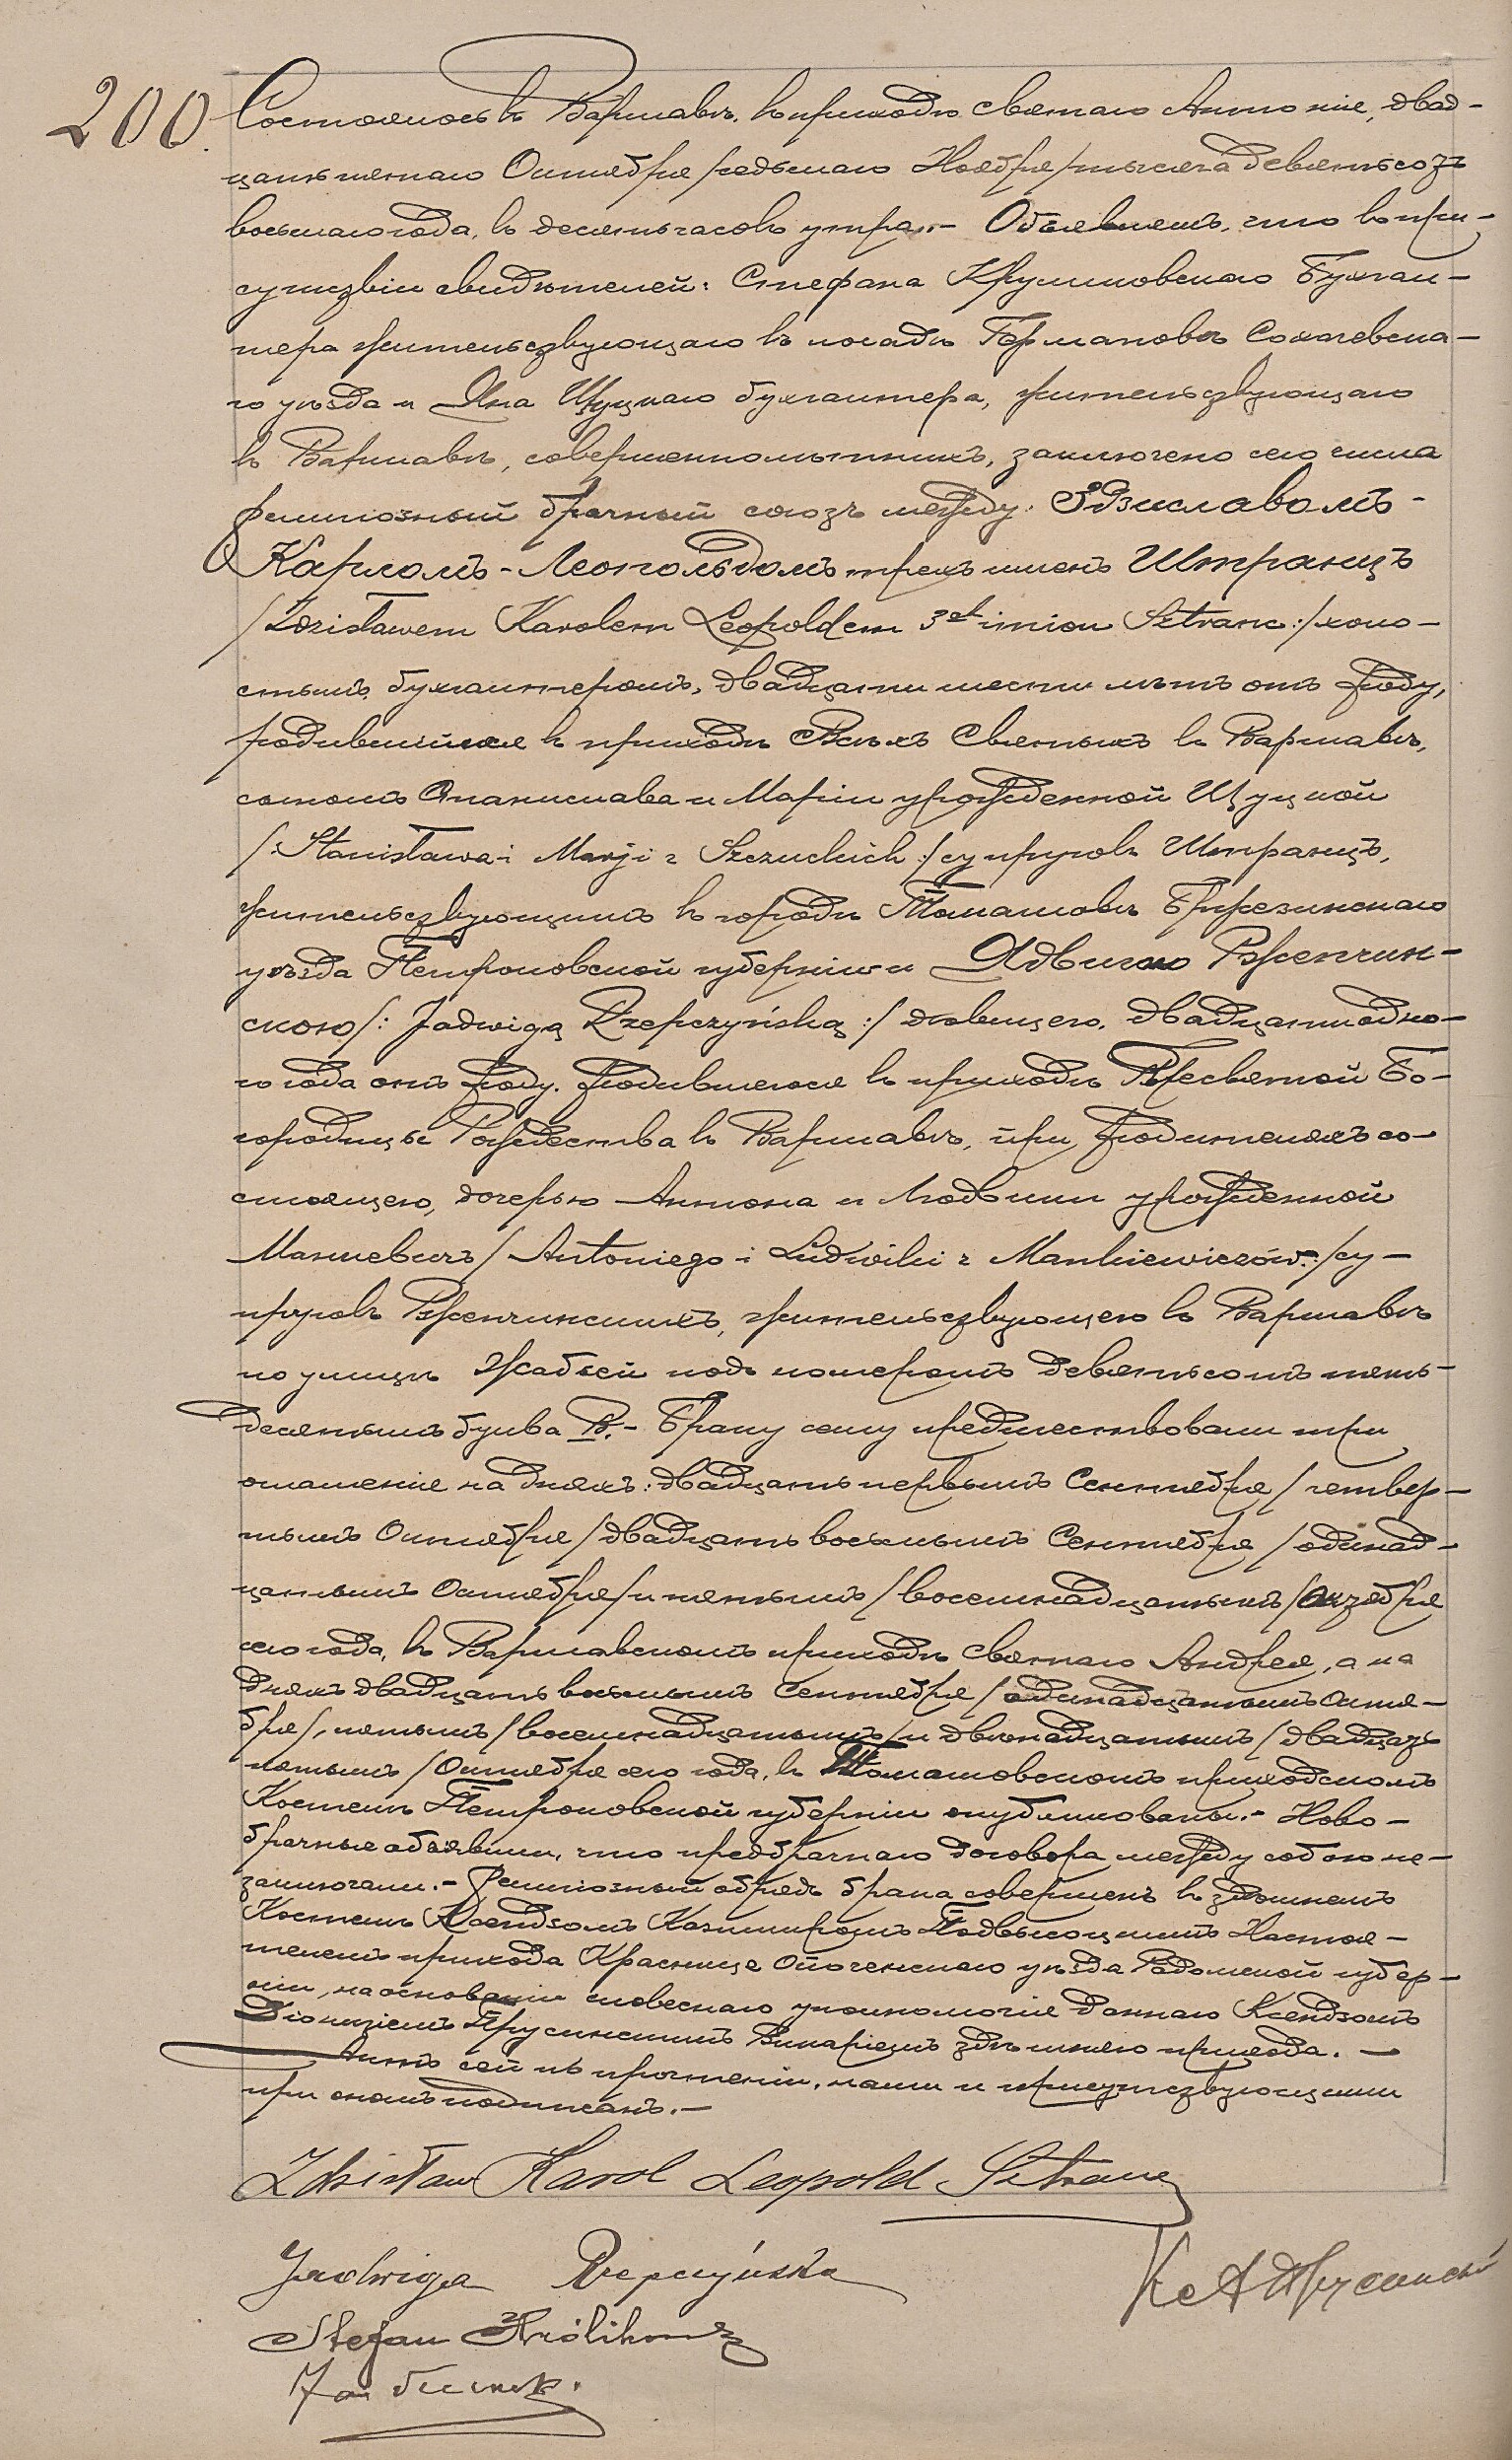 200.
Состоялось въ Варшавѣ, въ приходѣ Святаго Антонія, двад-
цать пятаго Октября /седьмаго Ноября/ тысяча девятьсотъ
восьмаго года, въ десять часовъ утра.- Объявляемъ, что въ при-
сутствіи свидѣтелей: Стефана Круликовскаго Бухгал-
тера жительствующаго въ посадѣ Германовѣ Сохачевска-
го уѣзда и Яна Щуцкаго бухгалтера, жительствующаго
въ Варшавѣ, совершеннолѣтнихъ, заключено сего числа
религіозный брачный союзъ между: Здзиславомъ-
Карломъ-Леопольдомъ трехъ именъ Штранцъ
/Zdzisławem Karolem Leopoldem 3ch imion Sztranc:/ холо-
стымъ, бухгалтеромъ, двадцати шести лѣтъ отъ роду,
родившійся въ приходѣ Всѣхъ Святыхъ въ Варшавѣ,
сыномъ Станислава и Маріи урожденной Щуцкой
/:Stanisława i Marji z Szczuckich:/ супруговъ Штранцъ,
жительствующимъ въ городѣ Томашовѣ Брезинскаго
уѣзда Петроковской губерніи и Ядвигою Ржепчин-
скою /: Jadwigą Rzepczyńską :/ дѣвицею, двадцати одно-
го года отъ роду, родившеюся въ приходѣ Пресвятой Бо-
городицы Рождества въ Варшавѣ, при родителяхъ со-
стоящею, дочерью Антона и Людвики урожденной
Манкевичъ /Antoniego i Ludwiki z Mankiewiczów:/ су-
пруговъ Ржепчинскихъ, жительствующею въ Варшавѣ
по улицѣ Жабьей подъ номеромъ девятьсотъ пять-
десятымъ буква В.- Браку сему предшествовали три
оглашенія на дняхъ: двадцать первымъ Сентября /четвер-
тымъ Октября/ двадцать восьмымъ Сентября /одинад-
цатымъ Октября/ и пятымъ /восемнадцатымъ/ Октября
сего года, въ Варшавскомъ приходѣ Святаго Андрея, а на
дняхъ двадцать восьмымъ Сентября /одинадцатымъ Октя-
бря/, пятымъ /восемнадцатымъ/ и двѣнадцатымъ /двадцать
пятымъ/ Октября сего года, въ Томашовскомъ приходскомъ
Костелѣ Петроковской губерніи опубликованы.- Ново-
брачные объявили, что предбрачнаго договора между собою не-
заключали.- Религіозный обрядъ брака совершенъ въ здѣшнемъ
Костелѣ Ксендзомъ Казимиромъ Подвысоцкимъ Настоя-
телемъ прихода Красница Опоченскаго уѣзда Радомской губер-
ніи, на основаніи словеснаго уполномочія даннаго Ксендзомъ
Діонизіемъ Прусинскимъ Викаріемъ здѣшняго прихода.-
Актъ сей по прочтеніи, нами и присутствующими
при ономъ подписанъ.-
Zdzisław Karol Leopold Sztranc
Jadwiga Rzepczyńska
Stefan Królikowski
Jan